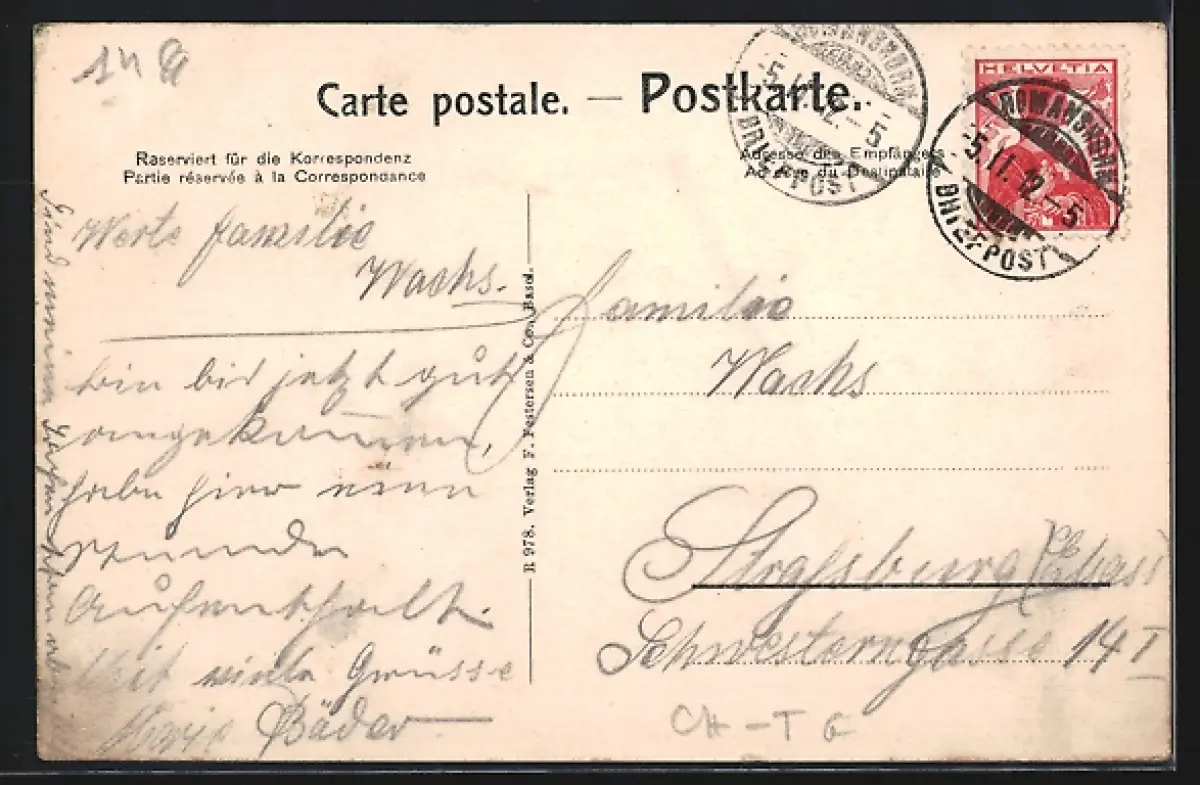 Carte postale. — Postkarte.
Raserviert für die Korrespondenz
Partie réservée à la Correspondance
Adresse des Empfängers
Adresse du Destinataire
HELVETIA
ROMANSHORN
-5.XI.12.-5
BRIEFPOST
ROMANSHORN
-5.XI.12.-5
BRIEFPOST
Werte Familie
Wachs.
bin bis jetzt gut
angekommen,
habe hier eine
Stunde
Aufenthalt.
Mit viele Grüsse
Marie Bäder
R 978. Verlag F. Festersen & Co., Basel.
Familie
Wachs
Strassburg (Elsass)
Schwesterngasse 14 I
CH-TG